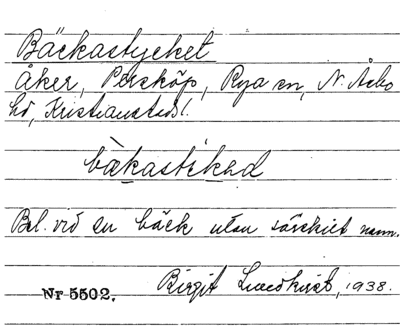 Bäckastycket
Åker, Perstorp, Rya sn, N. Åsbo
hd, Kristianstads l.
bækastikəd
Bel. vid en bäck utan särskilt namn.
Nr 5502. Birgit Lundkvist, 1938.